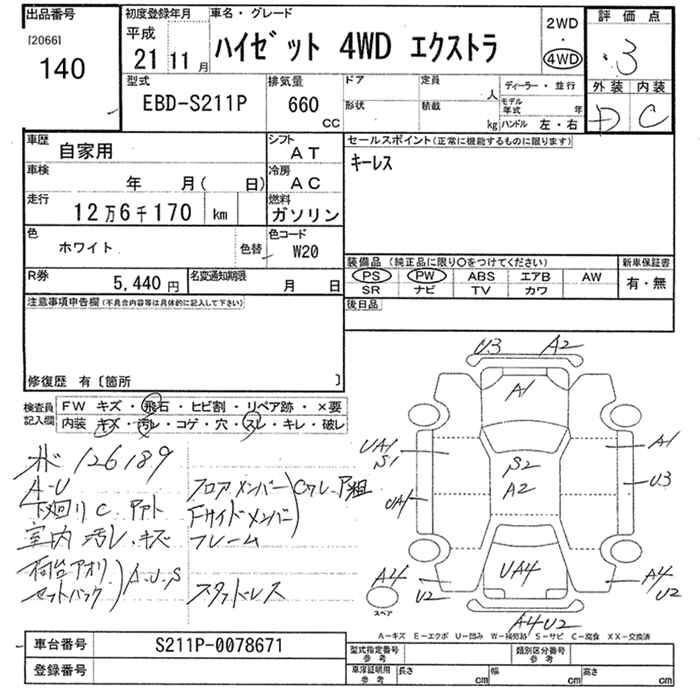 出品番号
[2066]
140
初度登録年月
平成
21 11 月
車名・グレード
ハイゼット 4WD エクストラ
2WD
・
4WD
評価点
3
外装 内装
D C
型式
EBD-S211P
排気量
660
CC
ドア
定員
人
形状
積載
kg
ディーラー・並行
モデル年式 年
ハンドル 左・右
車歴
自家用
シフト
AT
車検
年 月( 日)
冷房
AC
走行
12万6千170 km
燃料
ガソリン
色
ホワイト
色替
色コード
W20
R券
5,440 円
名変通知期限
月 日
セールスポイント(正常に機能するものに限ります)
キーレス
装備品(純正品に限り〇をつけてください)
PS PW ABS エアB AW
SR ナビ TV カワ
新車保証書
有・無
後日品
注意事項申告欄(不具合内容等は具体的に記入して下さい)
修復歴 有〔箇所 〕
検査員記入欄
FW キズ・飛石・ヒビ割・リペア跡・×要
内装 キズ・汚レ・コゲ・穴・スレ・キレ・破レ
126189
A-U
下廻り C
室内 汚レ.キズ
荷台アオリ
セットバック
A.U.S
フロアメンバー
Fサイドメンバー
フレーム
スタッドレス
U3 A2
A1
UA1
S1
A1
S2
A2
U3
UA1
UA4
A4
U2
A4
U2
スペア
A4U2
A-キズ E-エクボ U-凹み W-補修跡 S-サビ C-腐食 XX-交換済
車台番号
S211P-0078671
登録番号
型式指定番号
参考
類別区分番号
参考
車庫証明用
参考
長さ cm 幅 cm 高さ cm